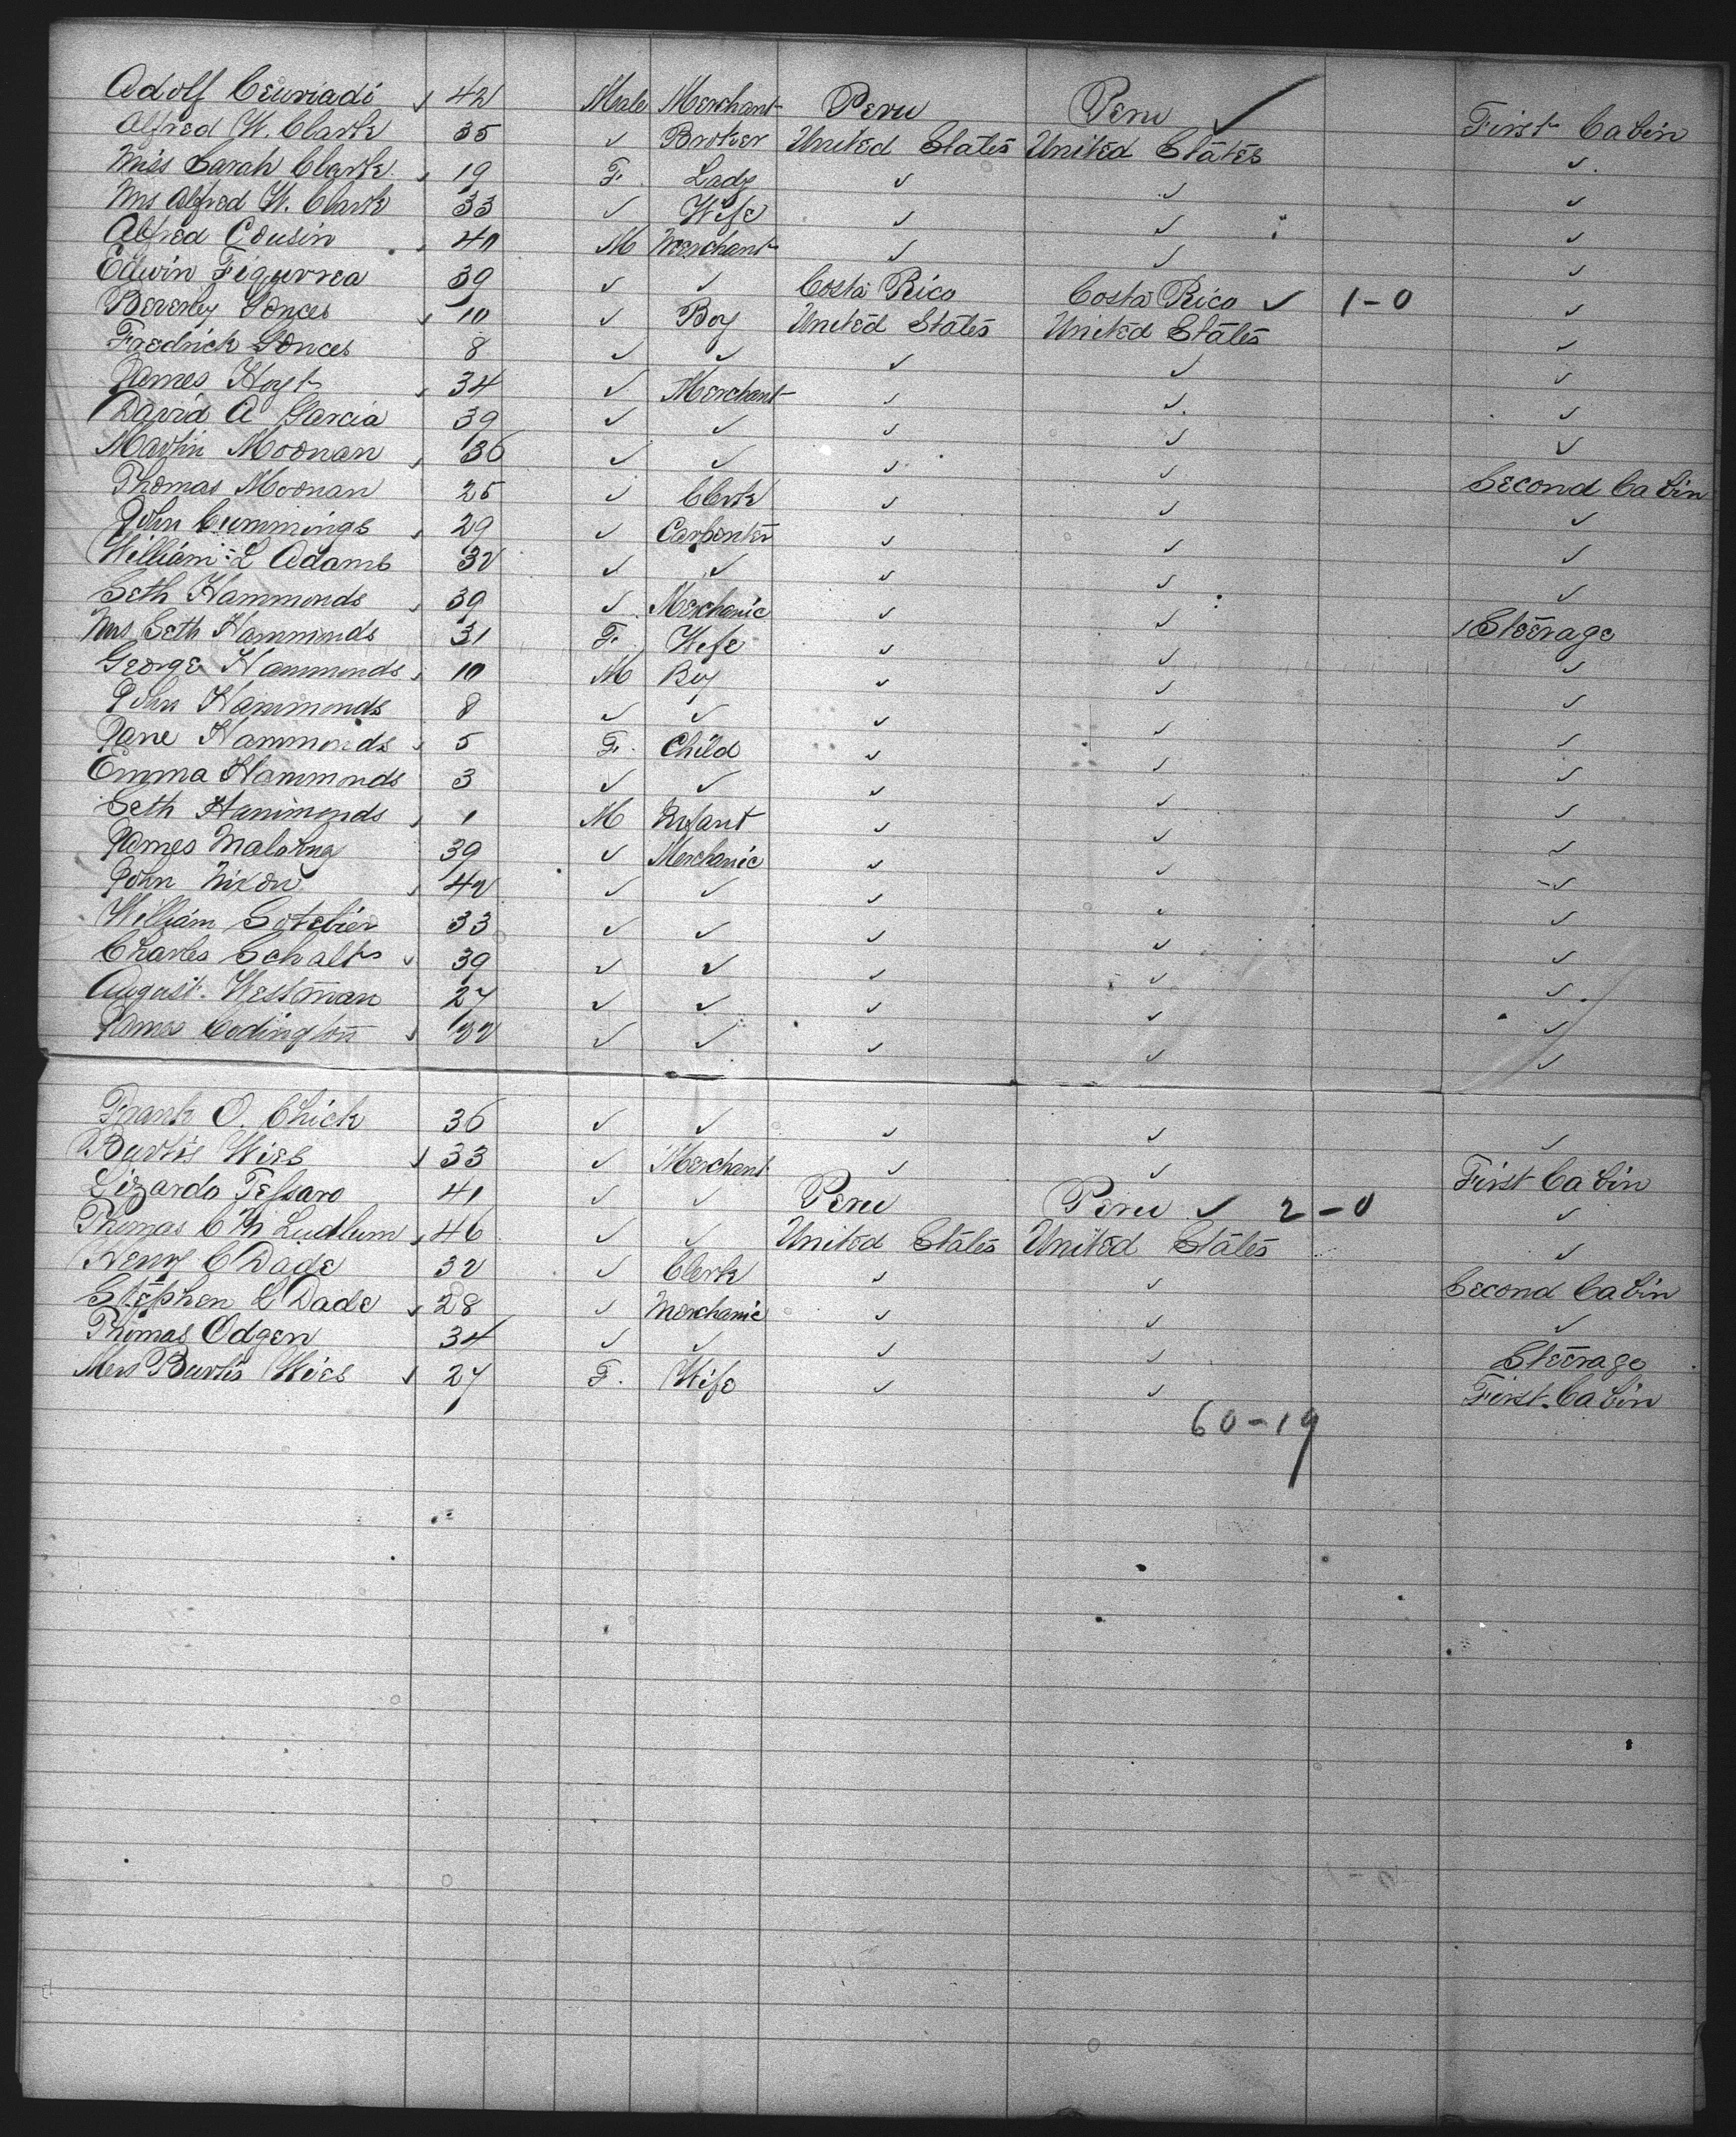 Adolf Ceuriadi 42 Male Merchant Peru Peru ✓ First Cabin
Alfred W. Clark 35 ✓ Broker United States United States ✓
Miss Sarah Clark 19 F. Lady ✓ ✓ ✓
Mrs Alfred W. Clark 33 ✓ Wife ✓ ✓ ✓
Alfred Cousin 40 M Merchant ✓ ✓ ✓
Edwin Figurrea 39 ✓ ✓ Costa Rico Costa Rico ✓ 1-0 ✓
Beverley 10 ✓ Boy United States United States ✓
Fredrick 8 ✓ ✓ ✓ ✓ ✓
James Hoyt 34 ✓ Merchant ✓ ✓ ✓
David A Garcia 39 ✓ ✓ ✓ ✓ ✓
Martin Moonan 36 ✓ ✓ ✓ ✓ Second Cabin
Thomas Moonan 25 ✓ Clerk ✓ ✓ ✓
John Cummings 29 ✓ Carpenter ✓ ✓ ✓
William L Adams 32 ✓ ✓ ✓ ✓ ✓
Seth Hammonds 39 ✓ Mechanic ✓ ✓ Steerage
Mrs Seth Hammonds 31 F. Wife ✓ ✓ ✓
George Hammonds 10 M Boy ✓ ✓ ✓
John Hammonds 8 ✓ ✓ ✓ ✓ ✓
Jane Hammonds 5 F. Child ✓ ✓ ✓
Emma Hammonds 3 ✓ ✓ ✓ ✓ ✓
Seth Hammonds 1 M Infant ✓ ✓ ✓
James Malohny 39 ✓ Mechanic ✓ ✓ ✓
John Nixon 42 ✓ ✓ ✓ ✓ ✓
William 33 ✓ ✓ ✓ ✓ ✓
Charles Schalts 39 ✓ ✓ ✓ ✓ ✓
August Westman 27 ✓ ✓ ✓ ✓ ✓
James Codington 32 ✓ ✓ ✓ ✓ ✓
Frank O. Chick 36 ✓ ✓ ✓ ✓ ✓
Burtis Wies 33 ✓ Merchant ✓ ✓ First Cabin
Lizardo Tessaro 41 ✓ ✓ Peru Peru ✓ 2-0 ✓
Thomas C M Ludlum 46 ✓ ✓ United States United States ✓
Henry C Dade 32 ✓ Clerk ✓ ✓ Second Cabin
Stephen L Dade 28 ✓ Mechanic ✓ ✓ ✓
Thomas Odgen 34 ✓ ✓ ✓ ✓ Steerage
Mrs Burtis Wies 27 F. Wife ✓ ✓ First Cabin
60-19